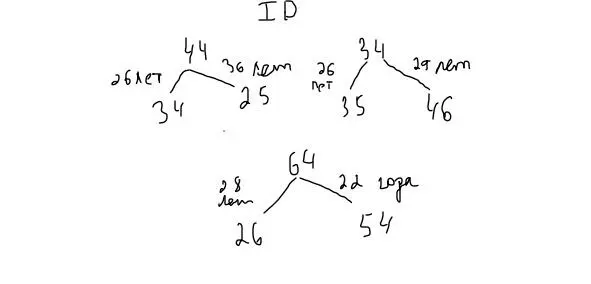 ID
44 34
26 лет 36 лет 26 лет 29 лет
34 25 35 46
64
28 лет 22 года
26 54